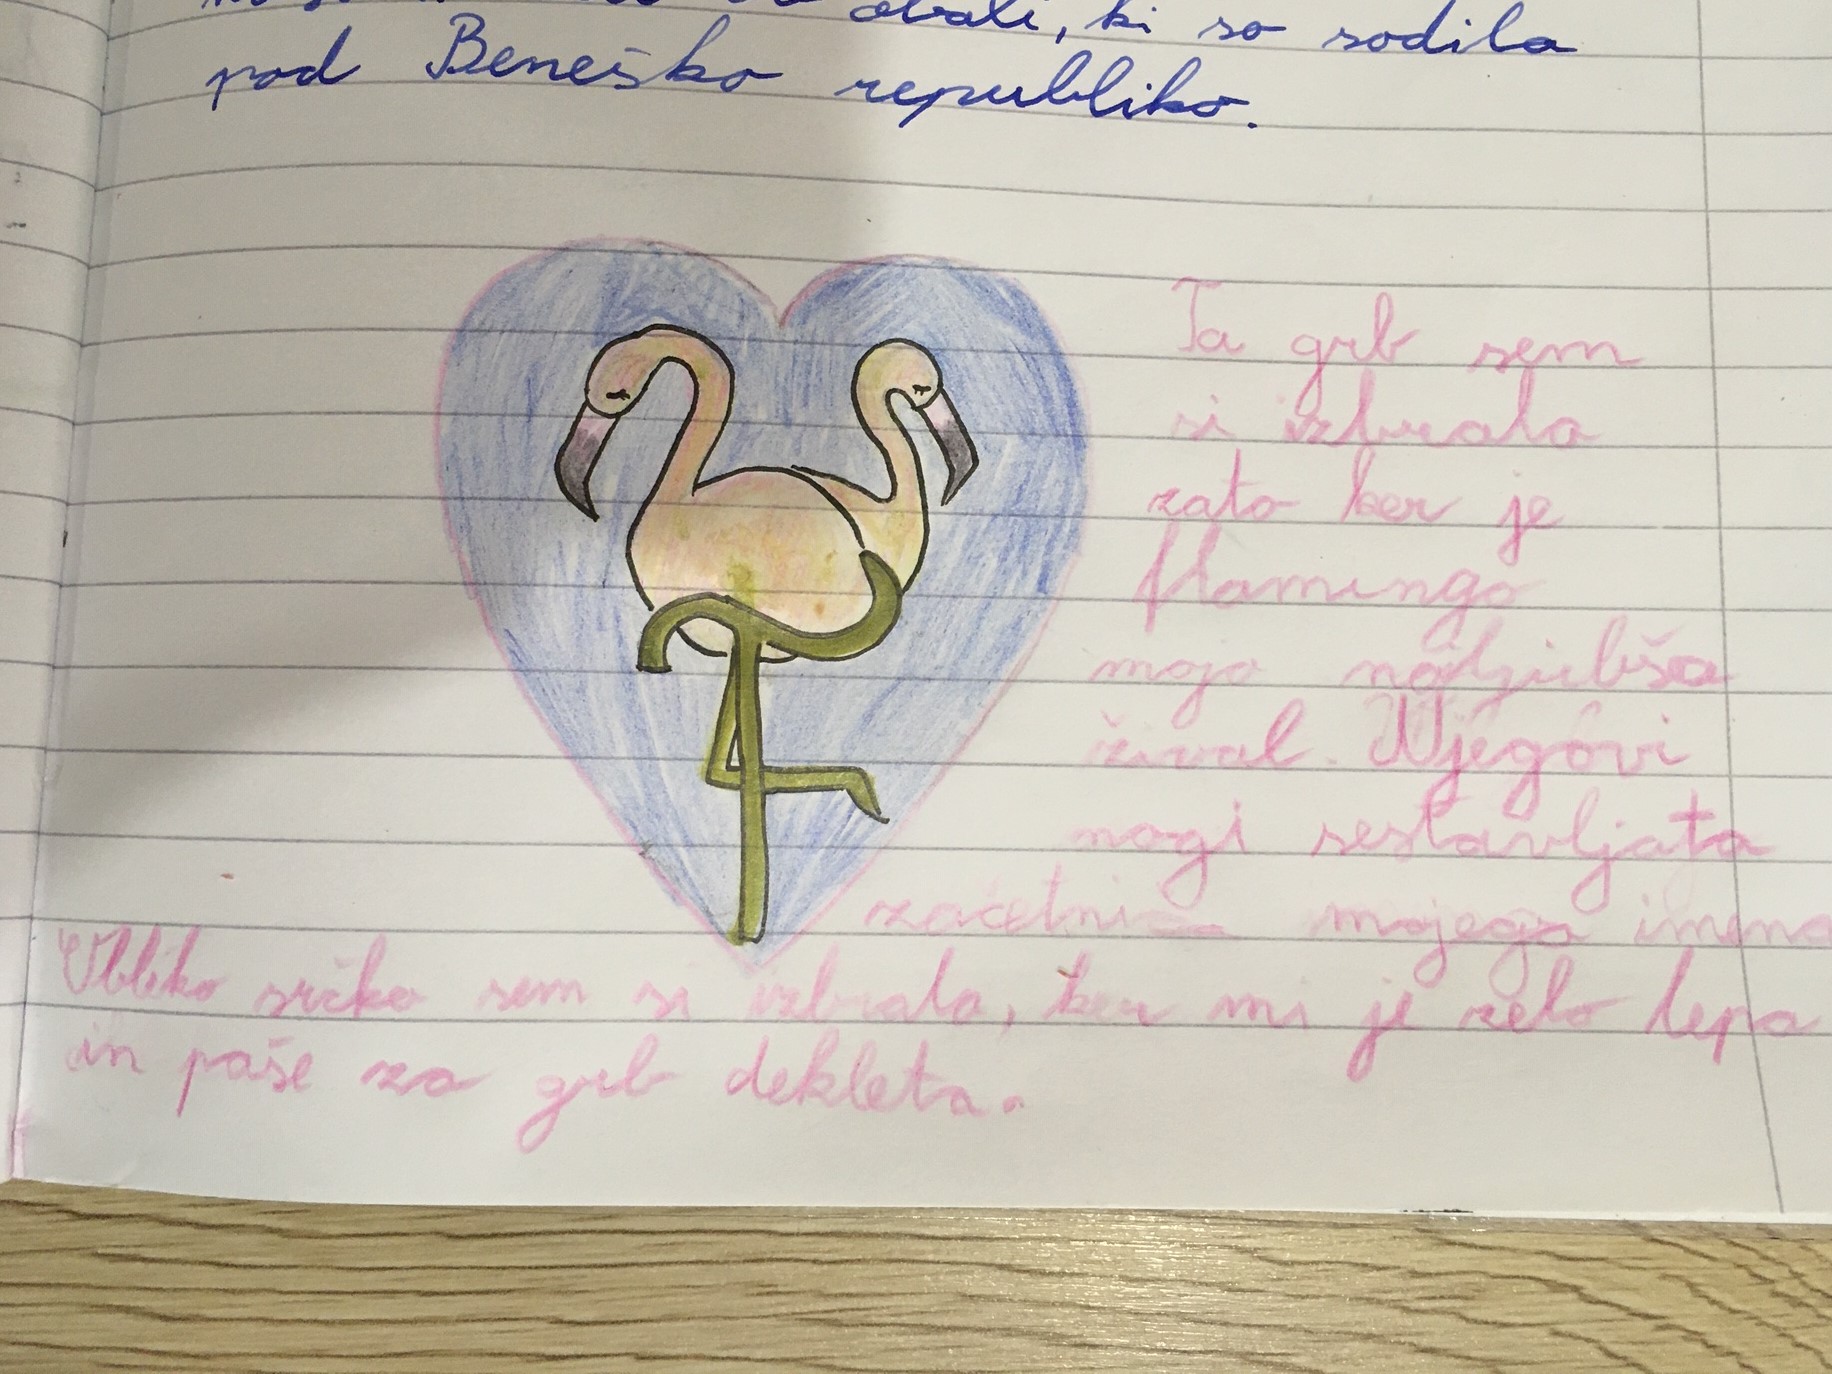 obali, ki so sodila
pod Beneško republiko.
Ta grb sem
si izbrala
zato ker je
flamingo
moja najljubša
žival. Njegovi
nogi sestavljata
začetnico mojega imena
Obliko srčka sem si izbrala, ker mi je zelo lepa
in paše za grb dekleta.